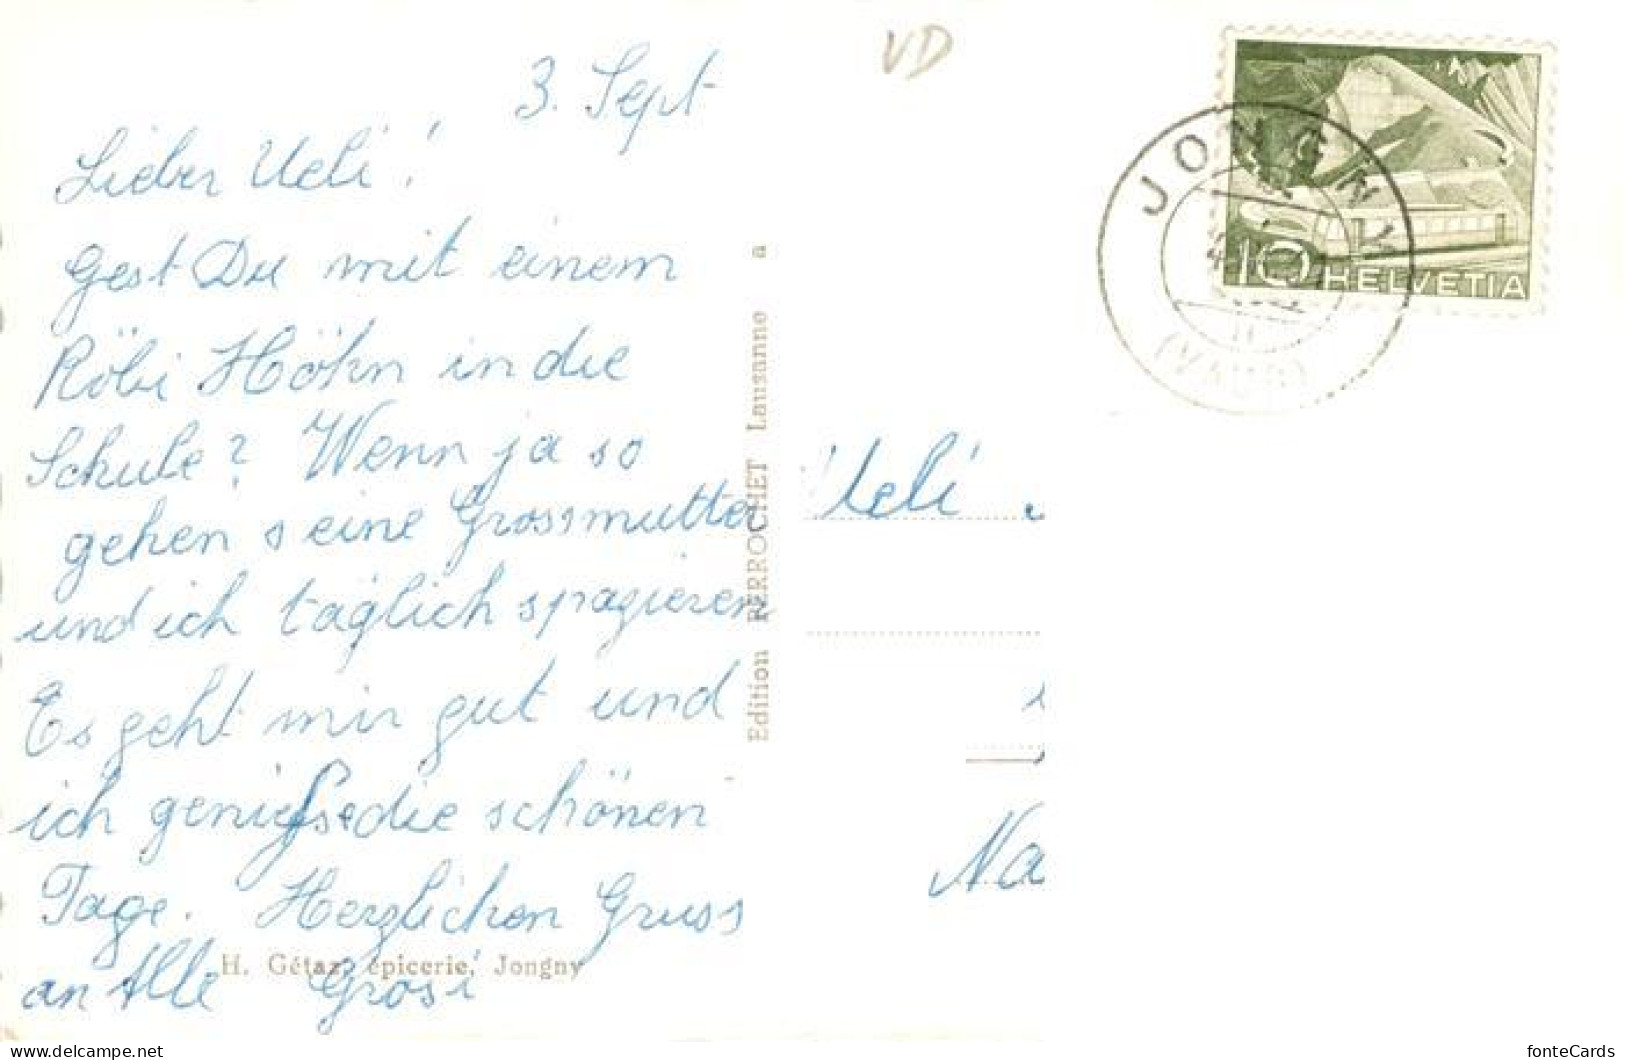 VD
3. Sept
Lieber Ueli!
Gest Du mit einem
Röbi Höhn in die
Schule? Wenn ja so
gehen seine Grossmutter
und ich täglich spazieren
Es geht mir gut und
ich geniesse die schönen
Tage. Herzlichen Gruss
an Alle Grosi
H. Gétaz, épicerie, Jongny
Edition PERROCHET Lausanne a
JONGNY
(VAUD)
10 HELVETIA
Ueli
Na
fonteCards
delcampe.net